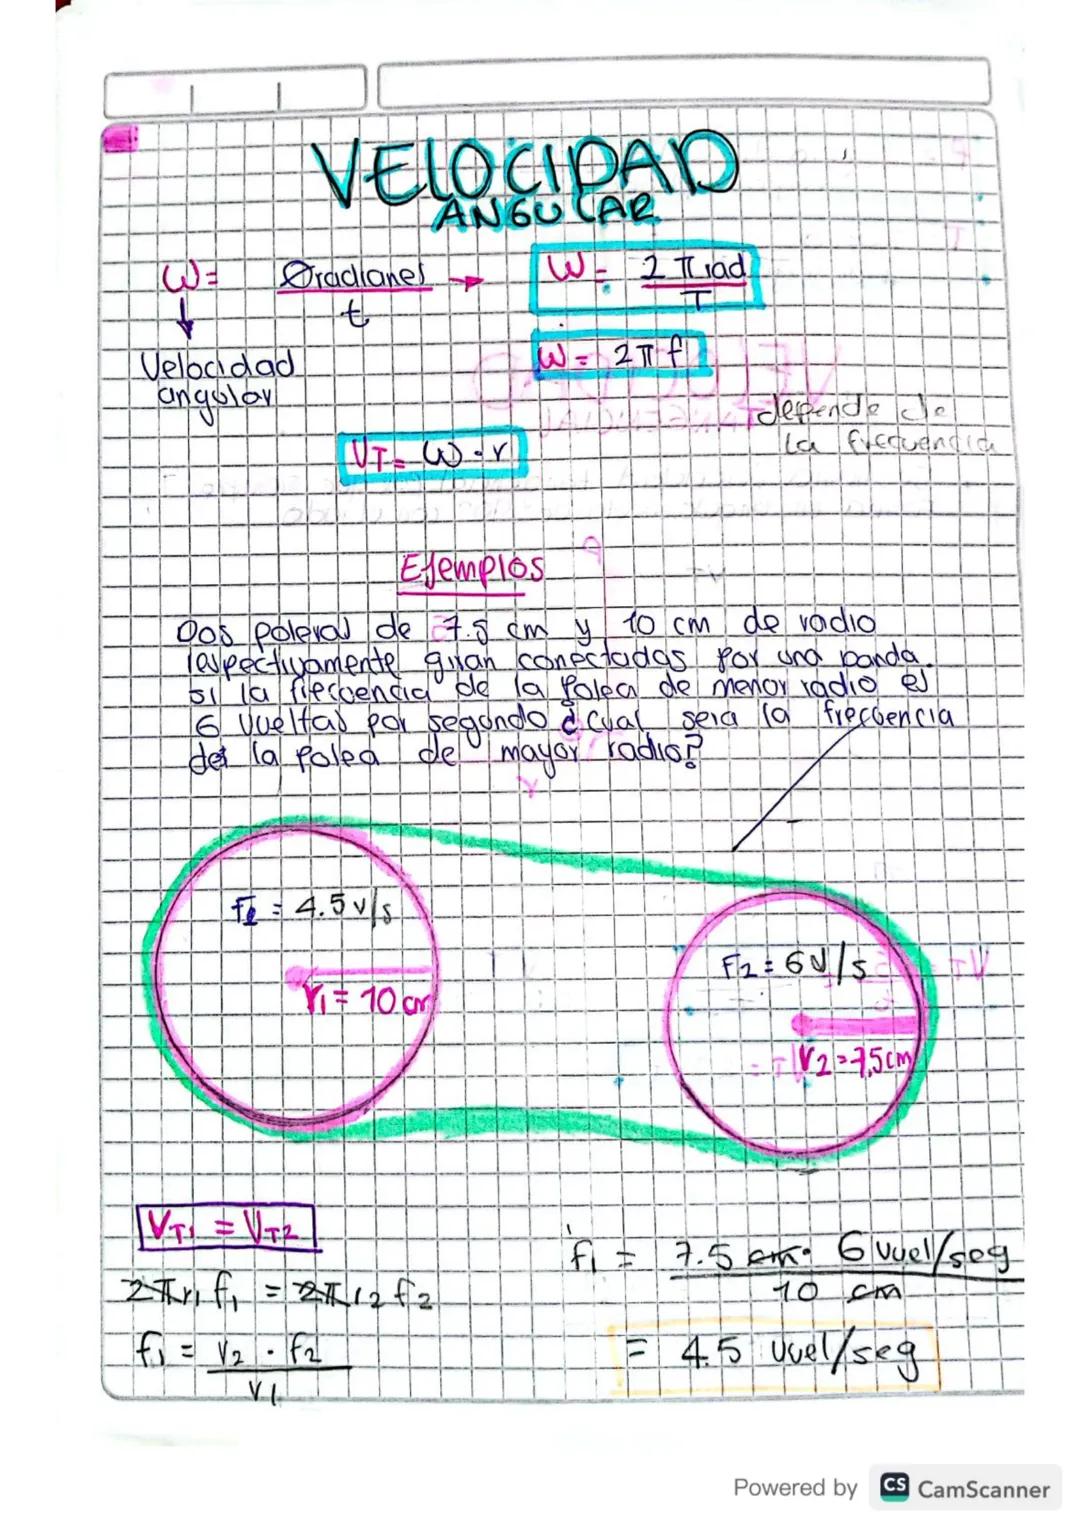 VELOCIDAD
ANGULAR
W= Øradianes / t → W= 2 π rad / T
Velocidad
angular
W= 2 π f
depende de
la frecuencia
VT= W · r
Ejemplos
Dos poleas de 7.5 cm y 10 cm de radio
respectivamente giran conectadas por una banda.
Si la frecuencia de la polea de menor radio es
6 vueltas por segundo ¿cual sera la frecuencia
de la polea de mayor radio?
= 4.5 v/s
r1 = 10 cm
F2 = 6 v/s
r2 = 7,5cm
VT1 = VT2
2πr1 f1 = 2π r2 f2
f1 = r2 · f2 / r1
f1 = 7.5 cm · 6 vuel/seg / 10 cm
= 4.5 vuel/seg
Powered by CS CamScanner